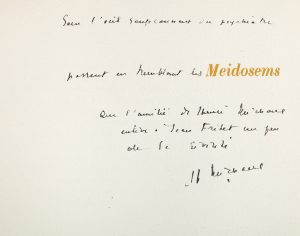 Sous l'œil soupçonneux du psychiatre
passent en tremblant les Meidosems
que l'amitié de Henri Michaux
enlève à Jean Fretet un peu
de sa
H Michaux